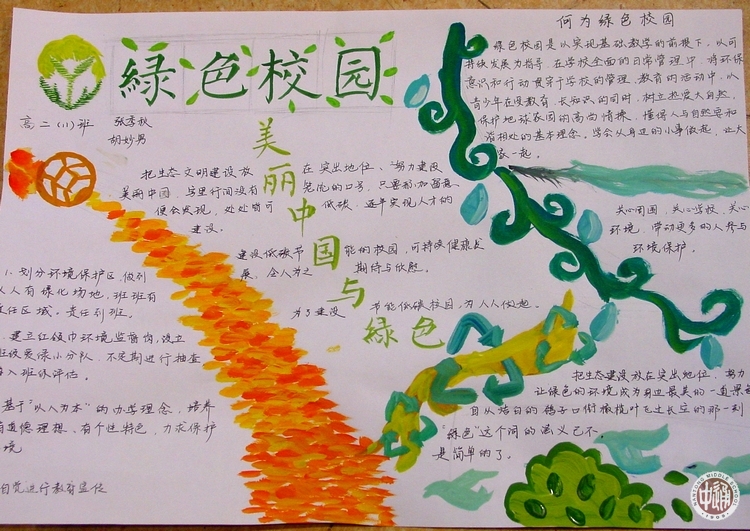 綠色校园
高二(11)班
张孝秋
胡妙男
美丽中国与綠色
何为绿色校园
绿色校园是以实现基础教学的前提下,以可
持续发展为指导,在学校全面的日常管理中,将环保
意识和行动贯穿于学校的管理、教育的活动中,以
青少年在受教育、长知识的同时,树立热爱大自然
保护地球家园的高尚情操,懂得人与自然要和
谐相处的基本理念。学会从身边的小事做起,让大
家一起。
关心周围,关心学校,关心
环境,带动更多的人参与
环境保护。
把生态文明建设放 在突出地位、"努力建设
美丽中国,字里行间没有
便会发现,处处皆可 低碳,逐年实现人才的
建设。
建设低碳节 能的校园,可持续健康发
展,令人为之 期待与欣慰。
为了建设 节能低碳校园,为人人做起。
1. 划分环境保护区,做到
人人有绿化场地,班班有
责任区域。责任到班。
建立红领巾环境监督岗,设立
小分队,不定期进行抽查
班级评估。
基于"以人为本"的办学理念,培养
有道德理想、有个性特色,力求保护
环境
自觉进行教育宣传
把生态建设放在突出地位,努力
让绿色的环境成为身边最美的一道景色
自从洁白的鸽子口衔橄榄叶飞过长空的那一刻
"绿色"这个词的涵义已不
是简单的了。
MIDDLE SCHOOL